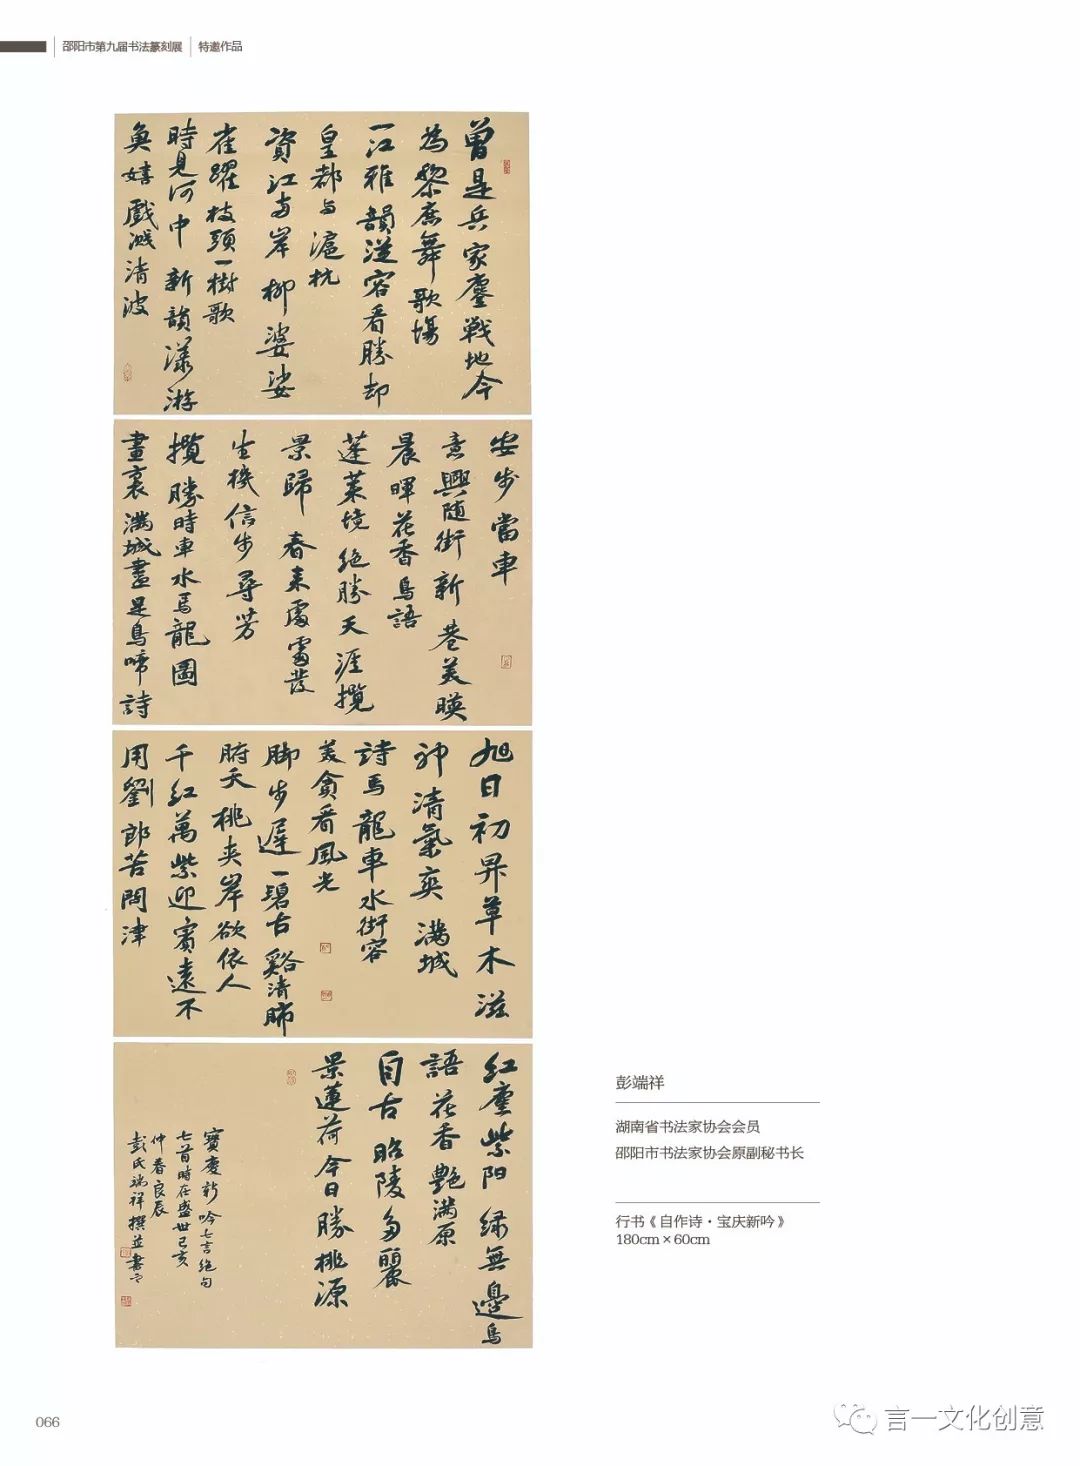 邵阳市第九届书法篆刻展 特邀作品
曾是兵家鏖戰地今
為黎庶舞歌場
一江雅韻従容看勝却
皇都与滬杭
資江両岸柳婆娑
雀躍枝頭一樹歌
時見河中新韻漾游
魚嬉戲濺清波
安步當車
意興随街新巷美暎
晨暉花香鳥語
蓬萊境絕勝天涯攬
景歸春来處處發
生機信步尋芳
攬勝時車水馬龍圖
畫裏滿城盡是鳥啼詩
旭日初昇草木滋
神清氣爽滿城
詩馬龍車水街容
美貪看風光
脚步遲一碧古谿清肺
腑夭桃夹岸欲依人
千红萬紫迎賓遠不
用劉郎苦問津
红塵紫阳绿無邊鳥
語花香艷滿原
自古昭陵多麗
景蓮荷今日勝桃源
寶慶新吟七言絕句
七首時在盛世己亥
仲春良辰
彭氏端祥撰並書之
彭端祥
湖南省书法家协会会员
邵阳市书法家协会原副秘书长
行书《自作诗·宝庆新吟》
180cm×60cm
066
言一文化创意